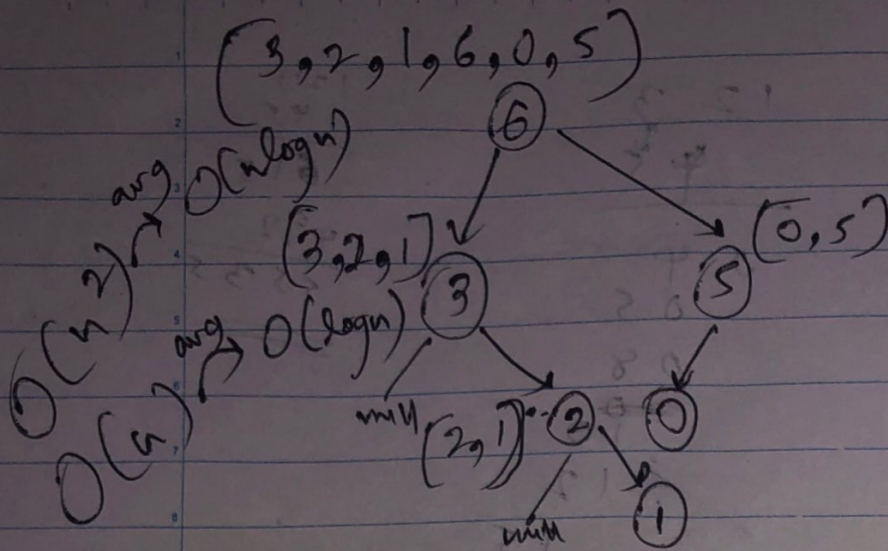 [3, 2, 1, 6, 0, 5]
6
O(n²) avg O(nlogn)
[3, 2, 1] 3
5 [0, 5]
O(n) avg O(logn)
null
[2, 1] 2
0
null
1